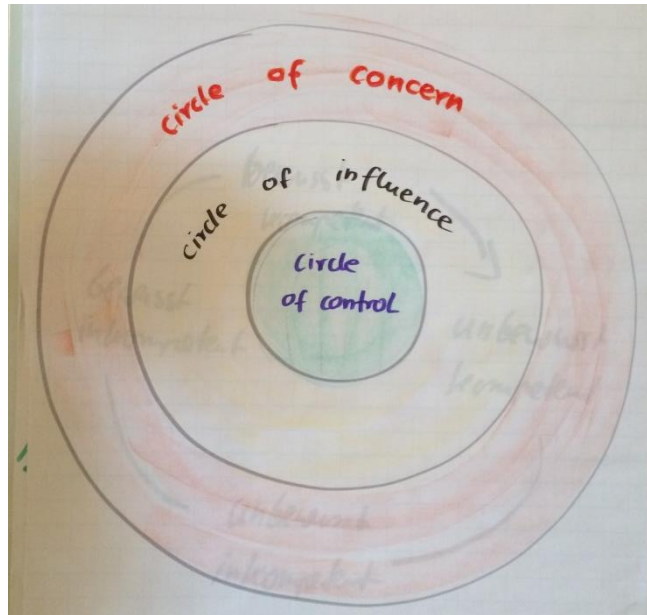 circle of concern
circle of influence
circle
of control
bewusst
inkompetent
unbewusst
kompetent
unbewusst
inkompetent